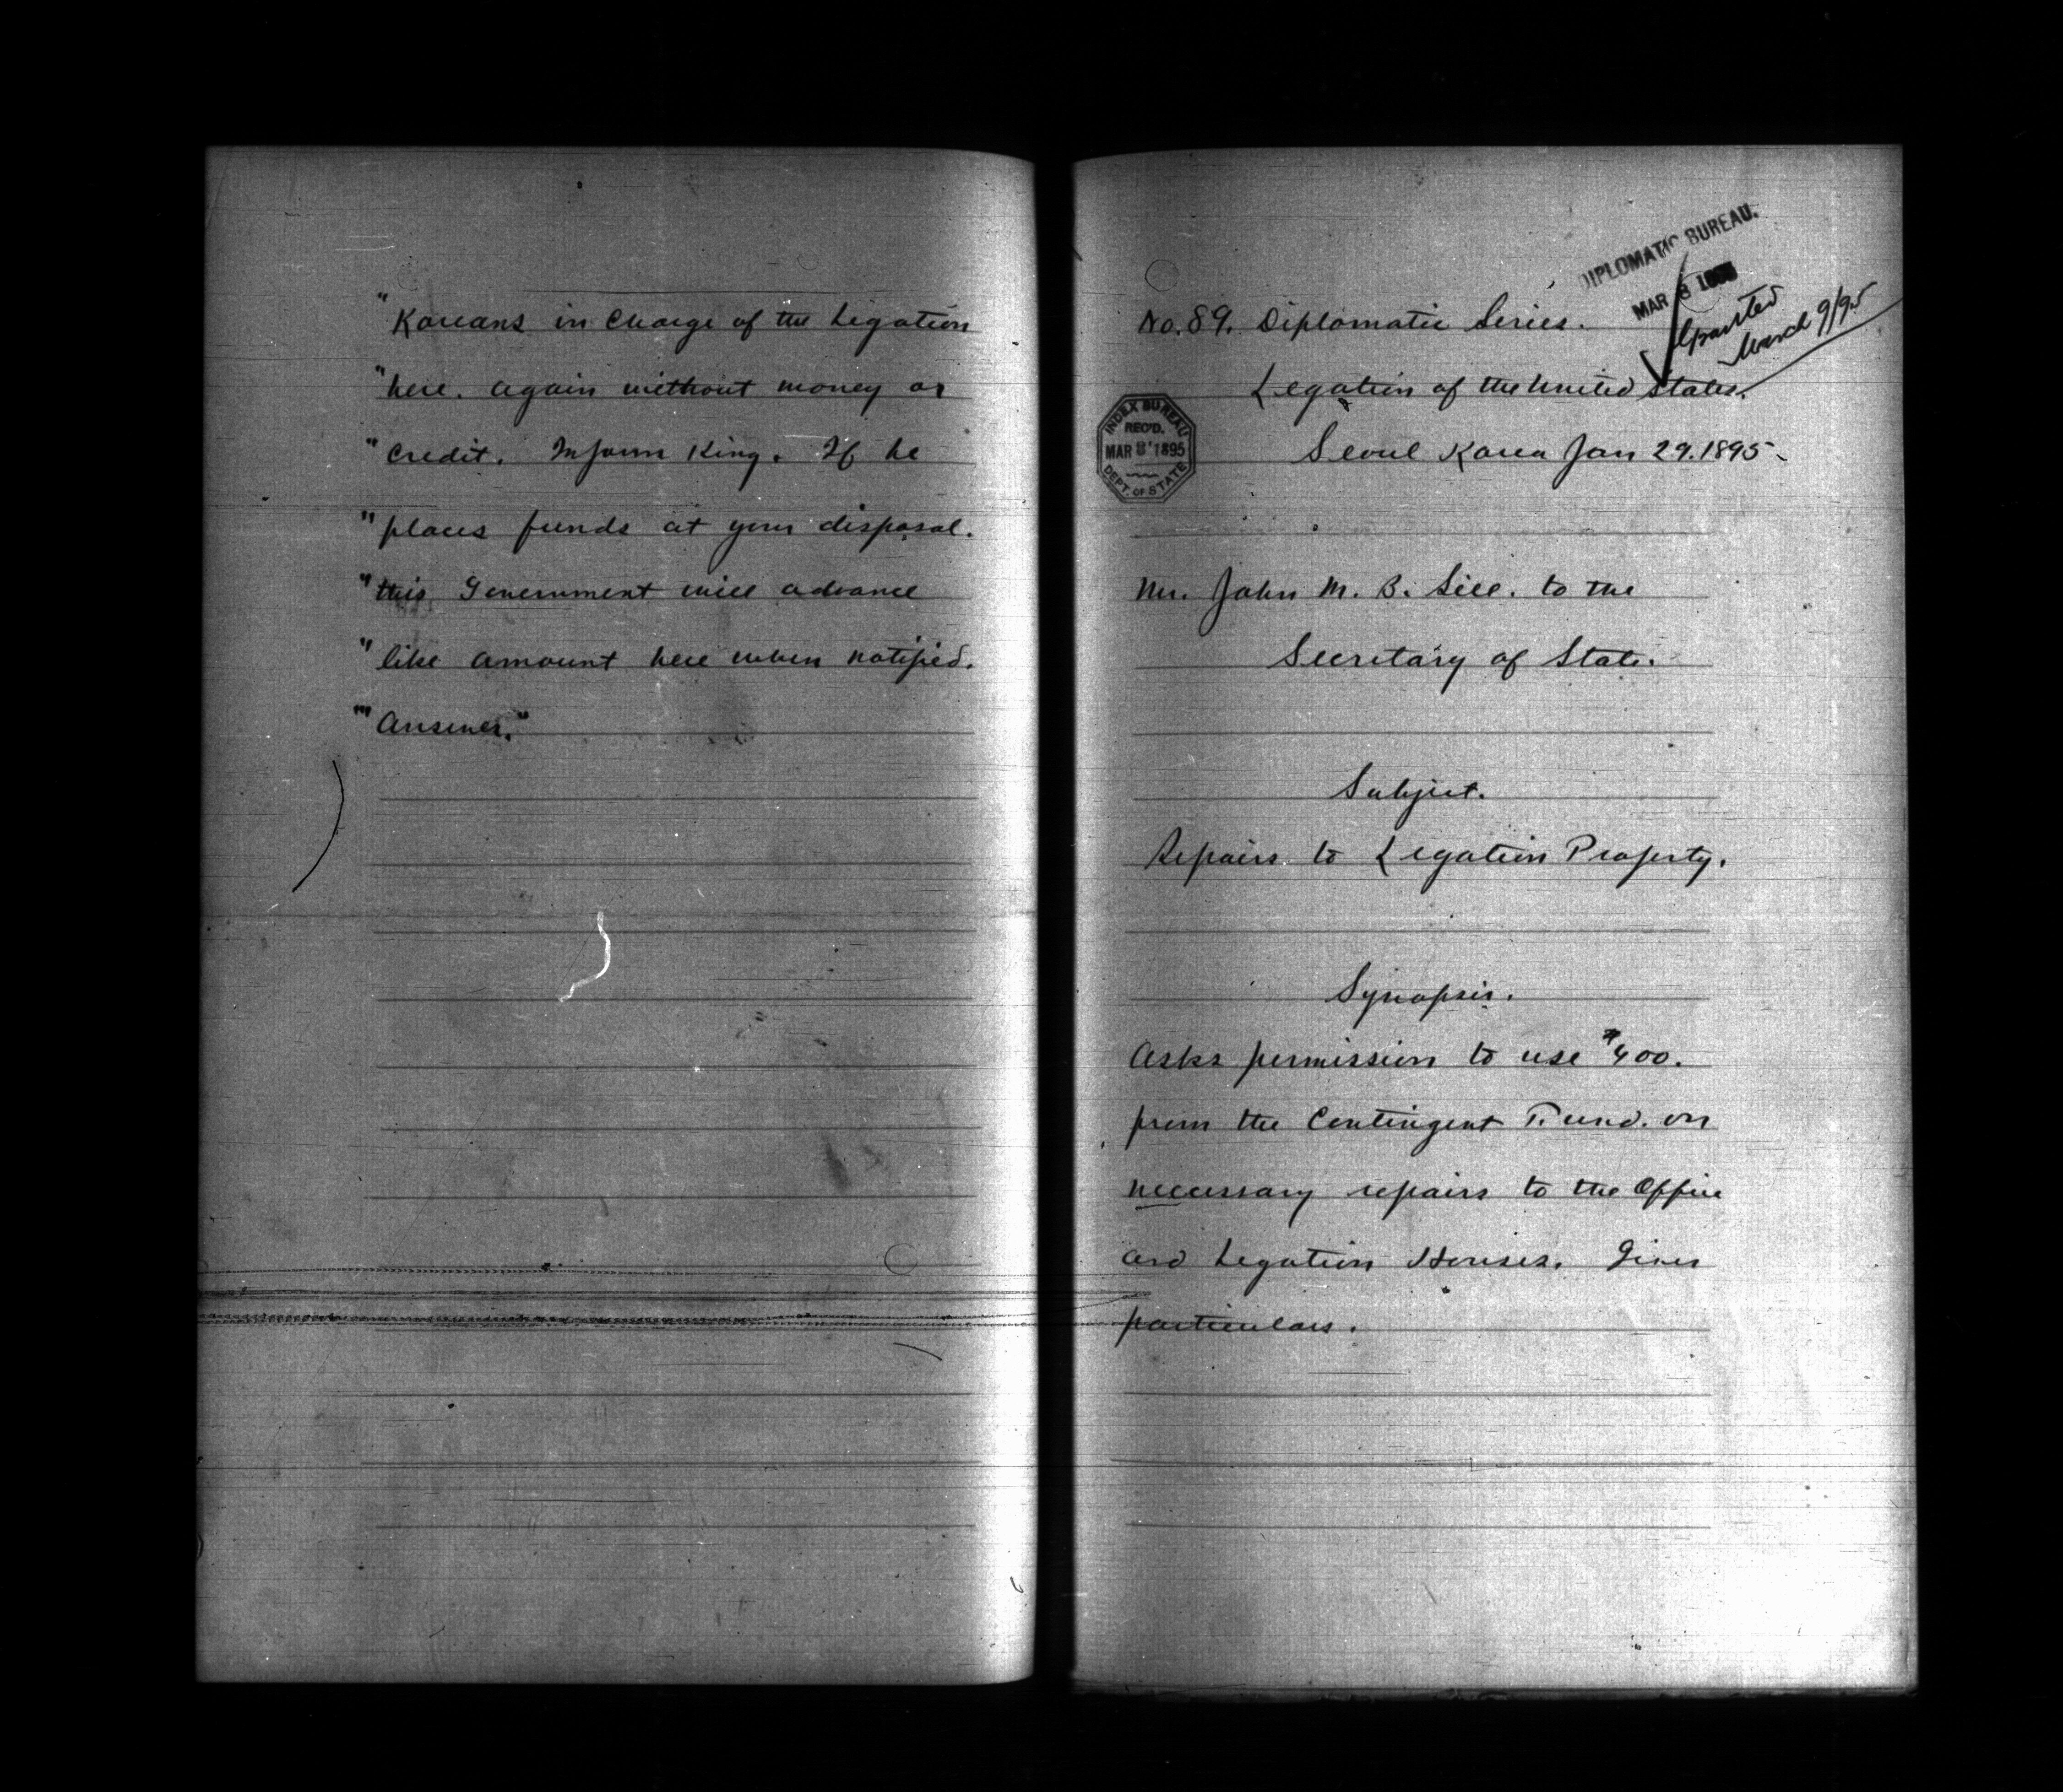 "Koreans in charge of the Legation
"here. again without money or
"credit. Inform King. If he
"places funds at your disposal.
"this Government will advance
"like amount here when notified.
"'Answer."
DIPLOMATIC BUREAU.
MAR 8 1895
March 9/95
No. 89. Diplomatic Series.
Legation of the United States.
INDEX BUREAU
REC'D.
MAR 8 1895
DEPT. OF STATE
Seoul Korea Jan 29. 1895.
Mr. John M. B. Sill. to the
Secretary of State.
Subject.
Repairs to Legation Property.
Synopsis.
Asks permission to use $400.
from the Contingent Fund. on
necessary repairs to the Office
and Legation Houses. Gives
particulars.